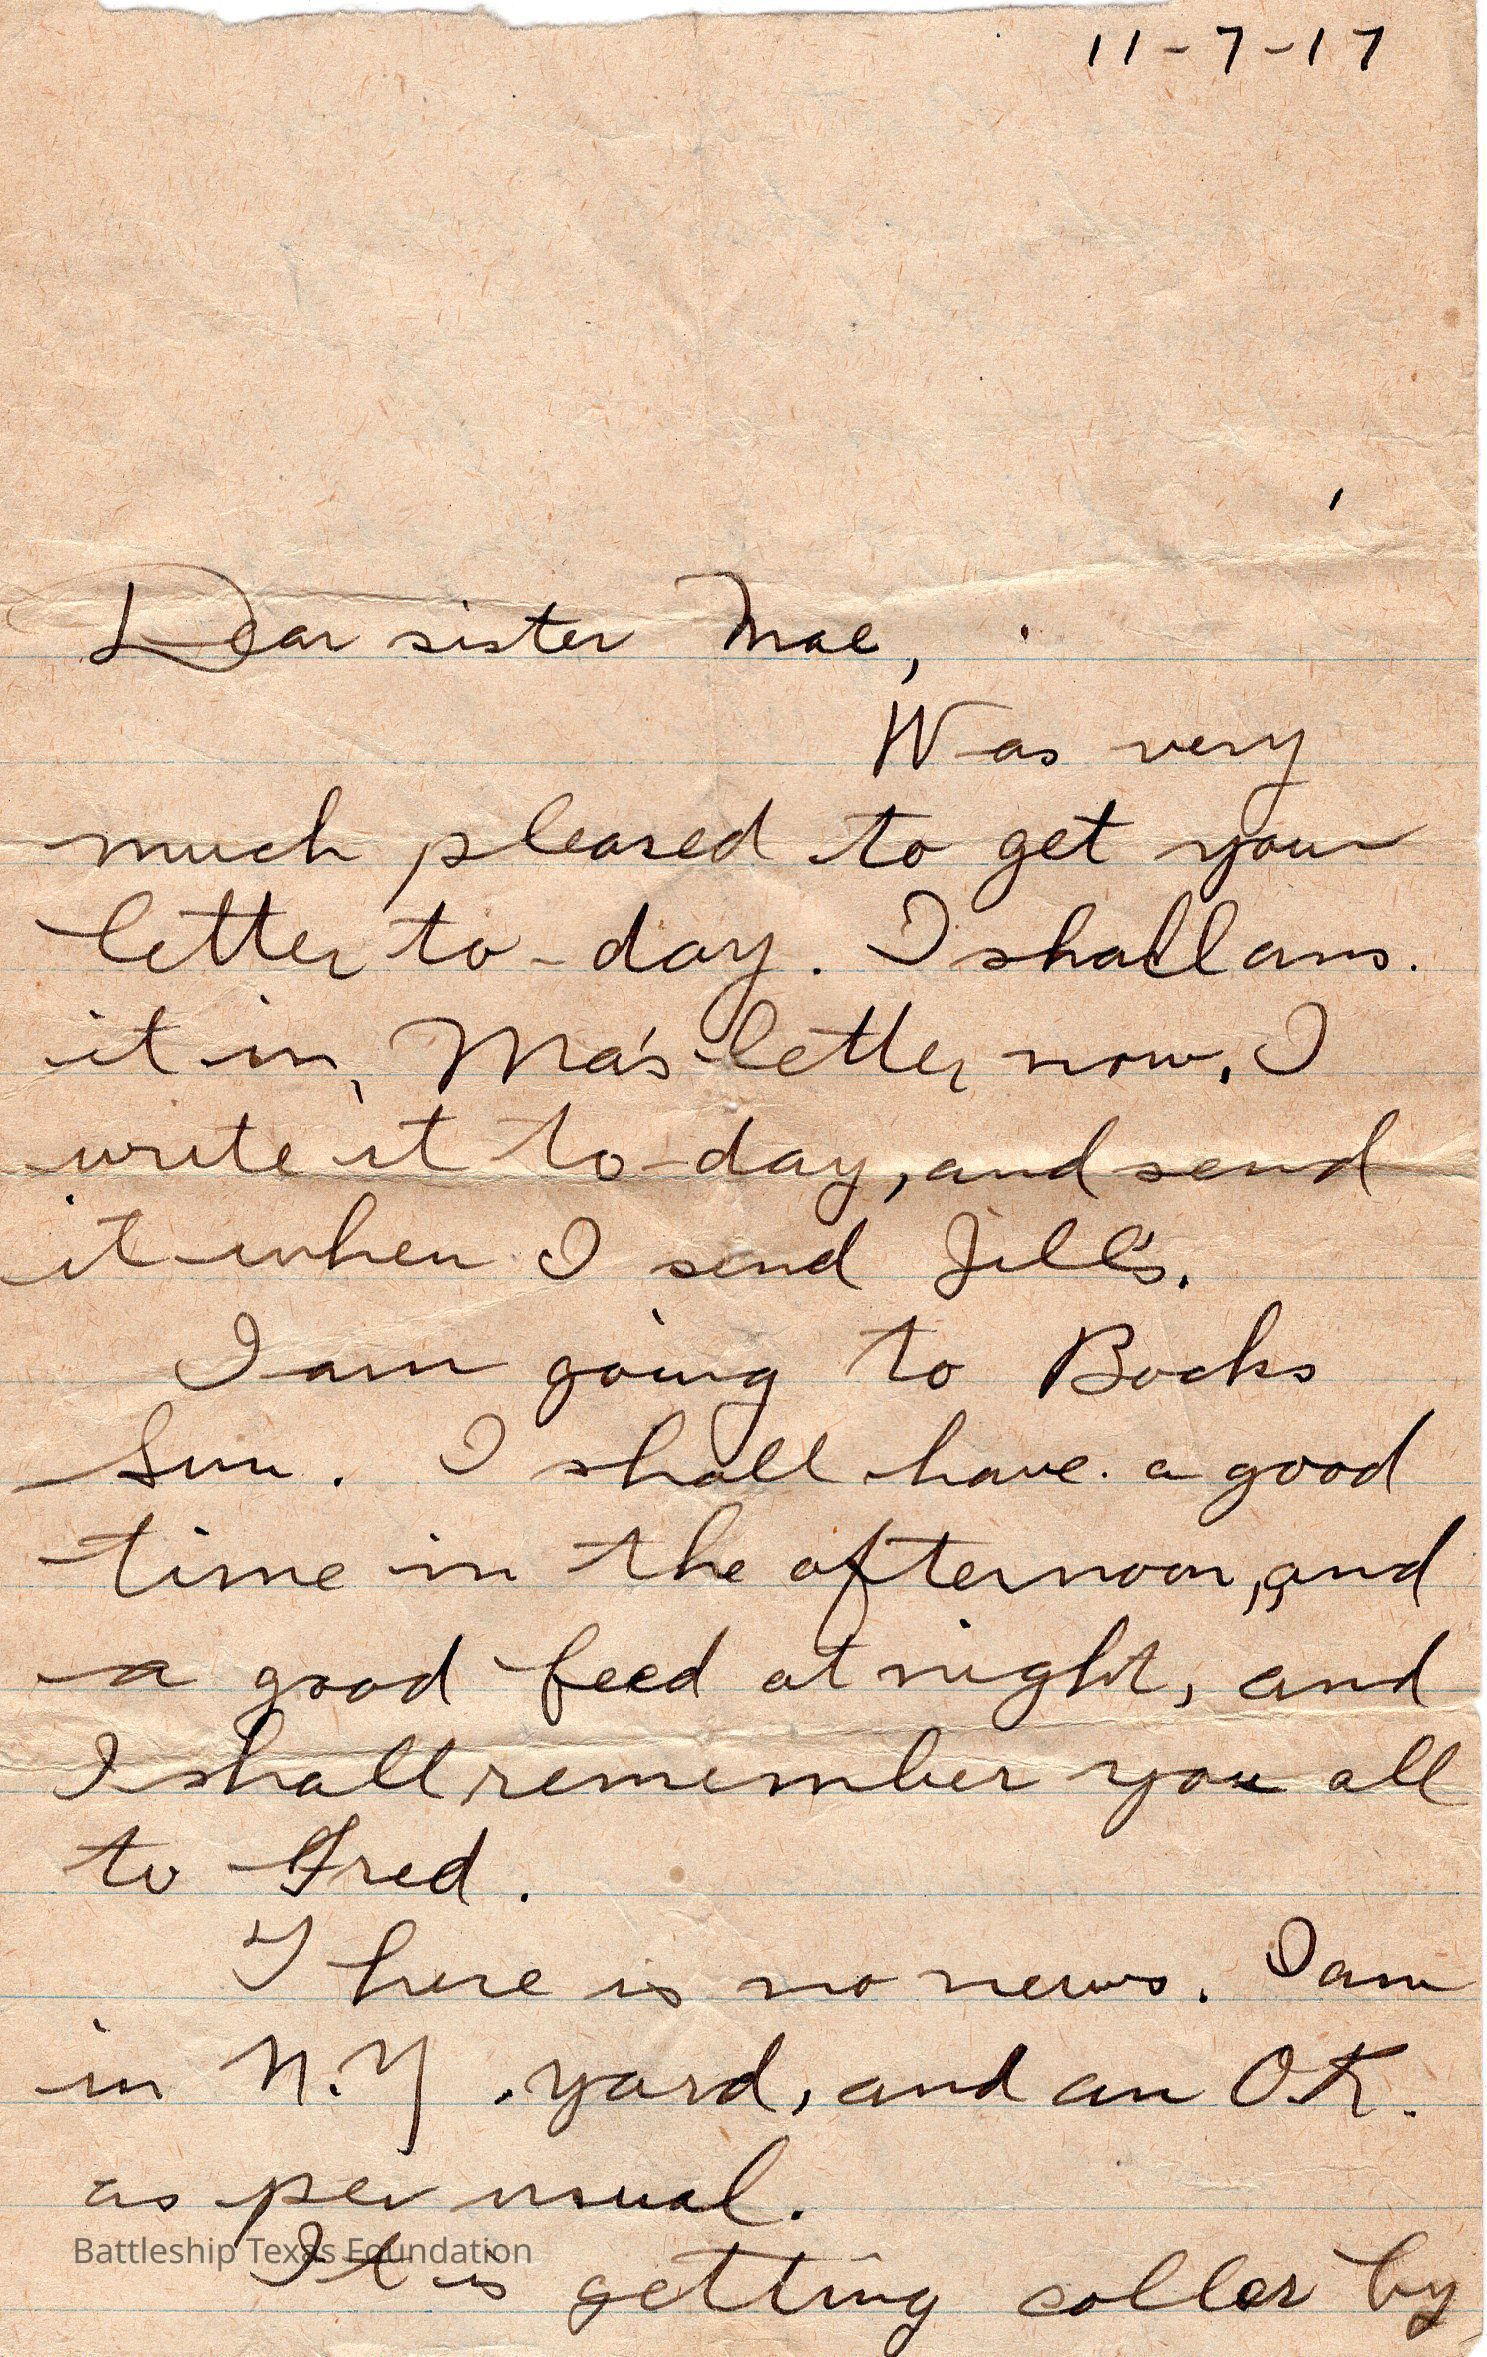 11-7-17
Dear sister Mae,
Was very
much pleased to get your
letter to-day. I shall ans.
it in, Ma's letter now. I
write it to-day, and send
it when I send Jill's.
I am going to Bocks
Sun. I shall have a good
time in the afternoon, and
a good feed at night, and
I shall remember you all
to Fred.
There is no news. I am
in N.Y. yard, and am O.K.
as per usual.
Battleship Texas Foundation
It is getting coller by